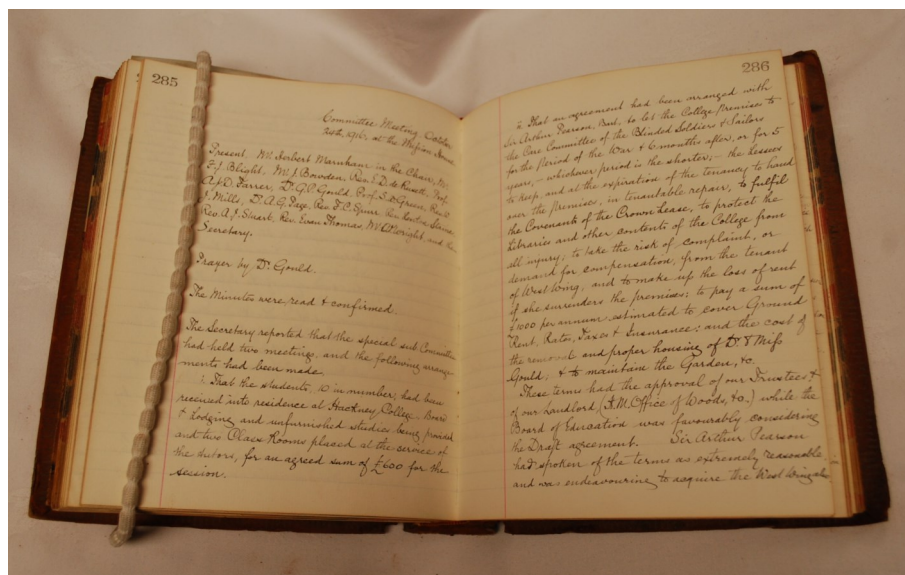 285
Committee Meeting, October
24th, 1916, at the Mission House.
Present. Mr. Herbert Marnham in the Chair, Mr.
F. J. Blight, Mr. J. Bowden, Rev. E. D. de Rusett, Prof.
A. J. D. Farrer, Dr. G. P. Gould, Prof. S. W. Green, Rev.
J. Mills, Dr. A. G. Page, Rev. F. C. Spurr,
Rev. A. J. Stuart, Rev. Evan Thomas, Mr. O. Wright, and the
Secretary.
Prayer by Dr. Gould.
The Minutes were read & confirmed.
The Secretary reported that the special sub Committee
had held two meetings, and the following arrange-
ments had been made
i. That the students, 10 in number, had been
received into residence at Hackney College. Board
& lodging and unfurnished studies being provided
and two Class Rooms placed at the service of
the tutors, for an agreed sum of £600 for the
session.
286
ii. That an agreement had been arranged with
Sir Arthur Pearson, Bart, to let the College Premises to
the Care Committee of the Blinded Soldiers & Sailors
for the period of the War & 6 months after, or for 5
years, - whichever period is the shorter; - the lessees
to keep, and at the expiration of the tenancy to hand
over the premises, in tenantable repair, to fulfil
the Covenant of the Crown Lease, to protect the
Libraries and other contents of the College from
all injury; to take the risk of complaint, or
demand for compensation, from the tenant
of West Wing, and to make up the loss of rent
if she surrenders the premises; to pay a sum of
£1000 per annum estimated to cover Ground
Rent, Rates, Taxes & Insurance; and the cost of
the removal and proper housing of Dr. & Miss
Gould; & to maintain the Garden, &c.
These terms had the approval of our Trustees &
of our landlord (H.M. Office of Woods, &c.) while the
Board of Education was favourably considering
the Draft agreement. Sir Arthur Pearson
had spoken of the terms as extremely reasonable
and was endeavouring to acquire the West Wing